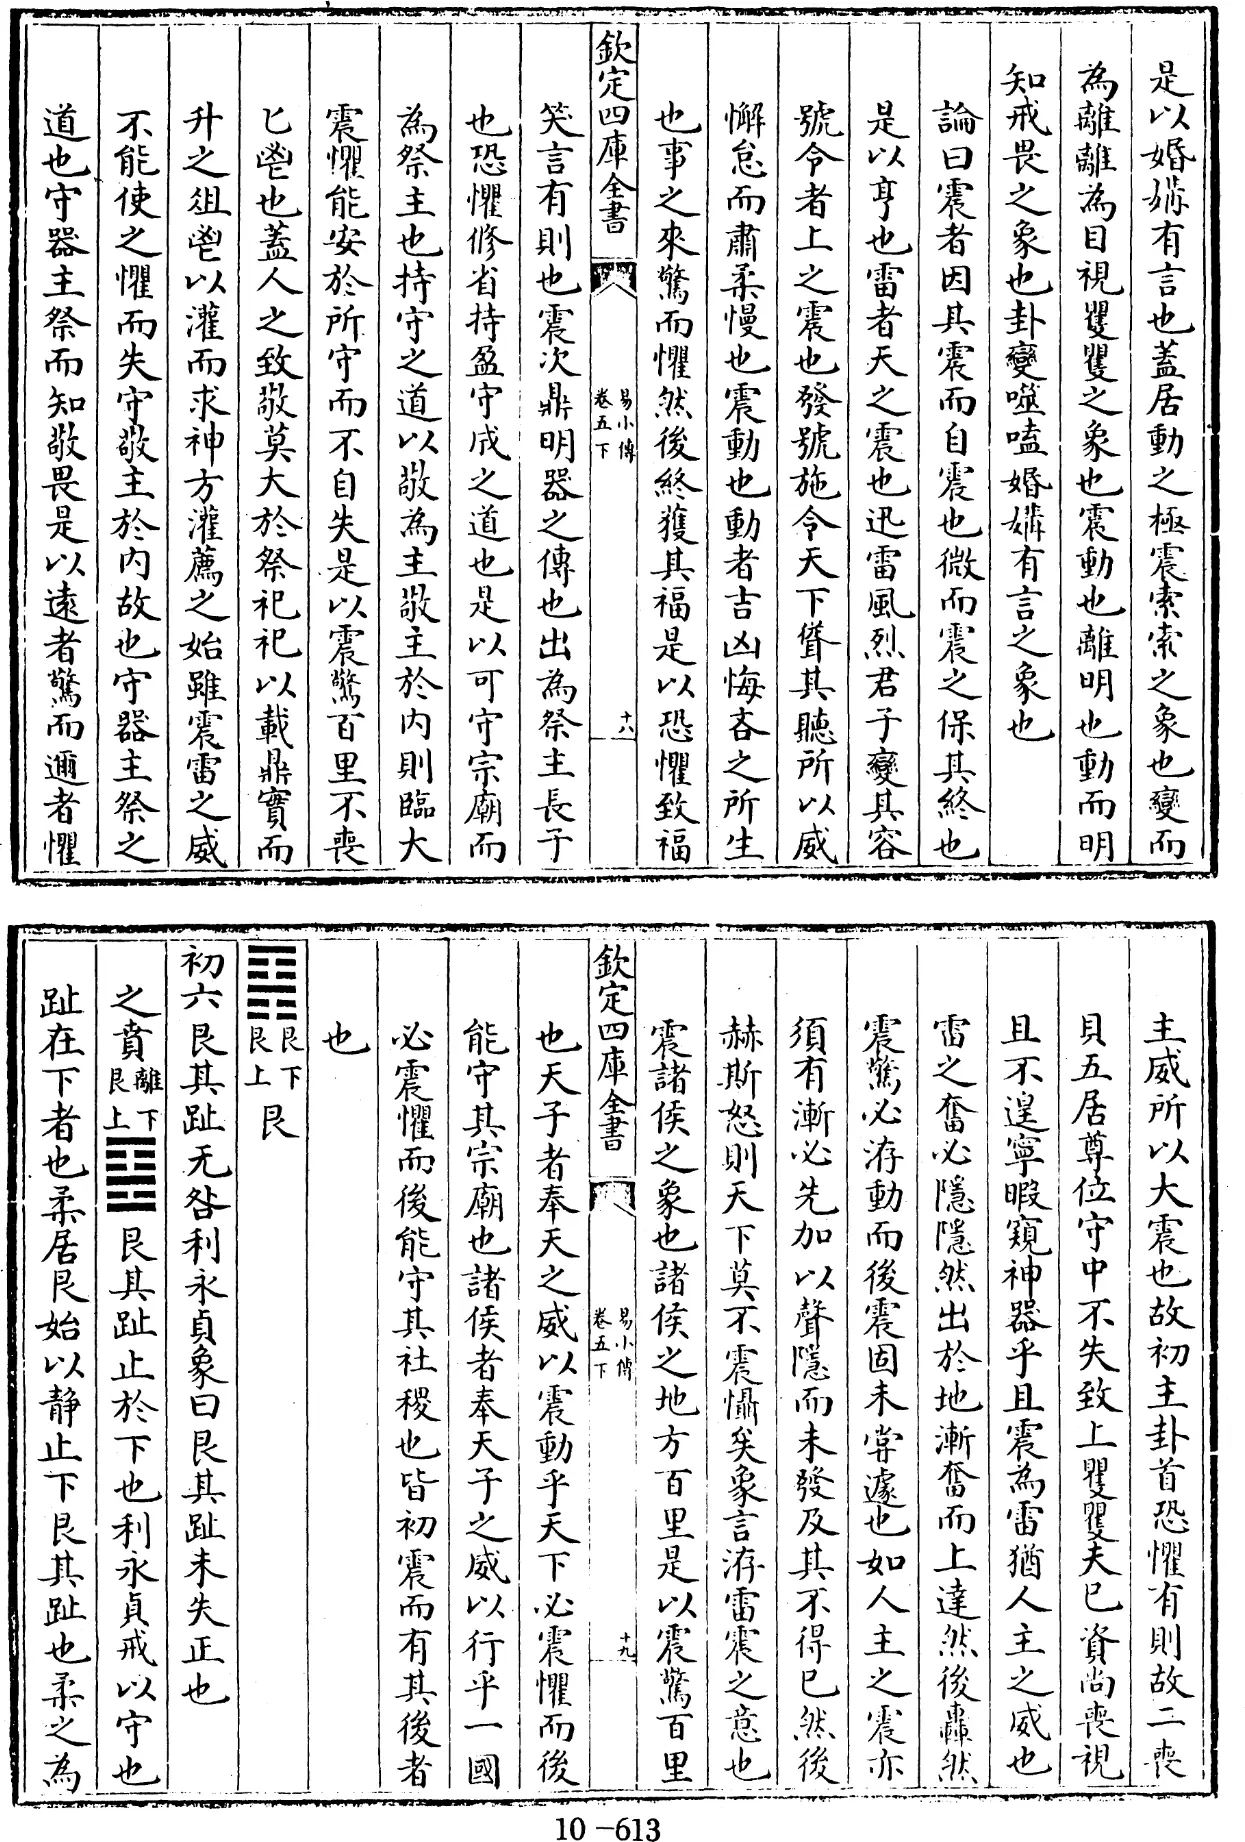 是以婚媾有言也蓋居動之極震索索之象也變而
為離離為目視矍矍之象也震動也離明也動而明
知戒畏之象也卦變噬嗑婚媾有言之象也
論曰震者因其震而自震也微而震之保其終也
是以亨也雷者天之震也迅雷風烈君子變其容
號令者上之震也發號施令天下聳其聽所以威
懈怠而肅柔慢也震動也動者吉凶悔吝之所生
也事之來驚而懼然後終獲其福是以恐懼致福
欽定四庫全書
易小傳
卷五下
十八
笑言有則也震次鼎明器之傳也出為祭主長子
也恐懼修省持盈守成之道也是以可守宗廟而
為祭主也持守之道以敬為主敬主於内則臨大
震懼能安於所守而不自失是以震驚百里不喪
匕鬯也蓋人之致敬莫大於祭祀祀以載鼎實而
升之俎鬯以灌而求神方灌薦之始雖震雷之威
不能使之懼而失守敬主於内故也守器主祭之
道也守器主祭而知敬畏是以遠者驚而邇者懼
主威所以大震也故初主卦首恐懼有則故二喪
貝五居尊位守中不失致上矍矍夫已資尚喪視
且不遑寧暇窺神器乎且震為雷猶人主之威也
雷之奮必隱隱然出於地漸奮而上達然後轟然
震驚必洊動而後震固未嘗遽也如人主之震亦
須有漸必先加以聲隱而未發及其不得已然後
赫斯怒則天下莫不震懾矣象言洊雷震之意也
震諸侯之象也諸侯之地方百里是以震驚百里
欽定四庫全書
易小傳
卷五下
十九
也天子者奉天之威以震動乎天下必震懼而後
能守其宗廟也諸侯者奉天子之威以行乎一國
必震懼而後能守其社稷也皆初震而有其後者
也
䷳艮下艮上艮
初六艮其趾无咎利永貞象曰艮其趾未失正也
之賁離下艮上䷕艮其趾止於下也利永貞戒以守也
趾在下者也柔居艮始以静止下艮其趾也柔之為
10-613